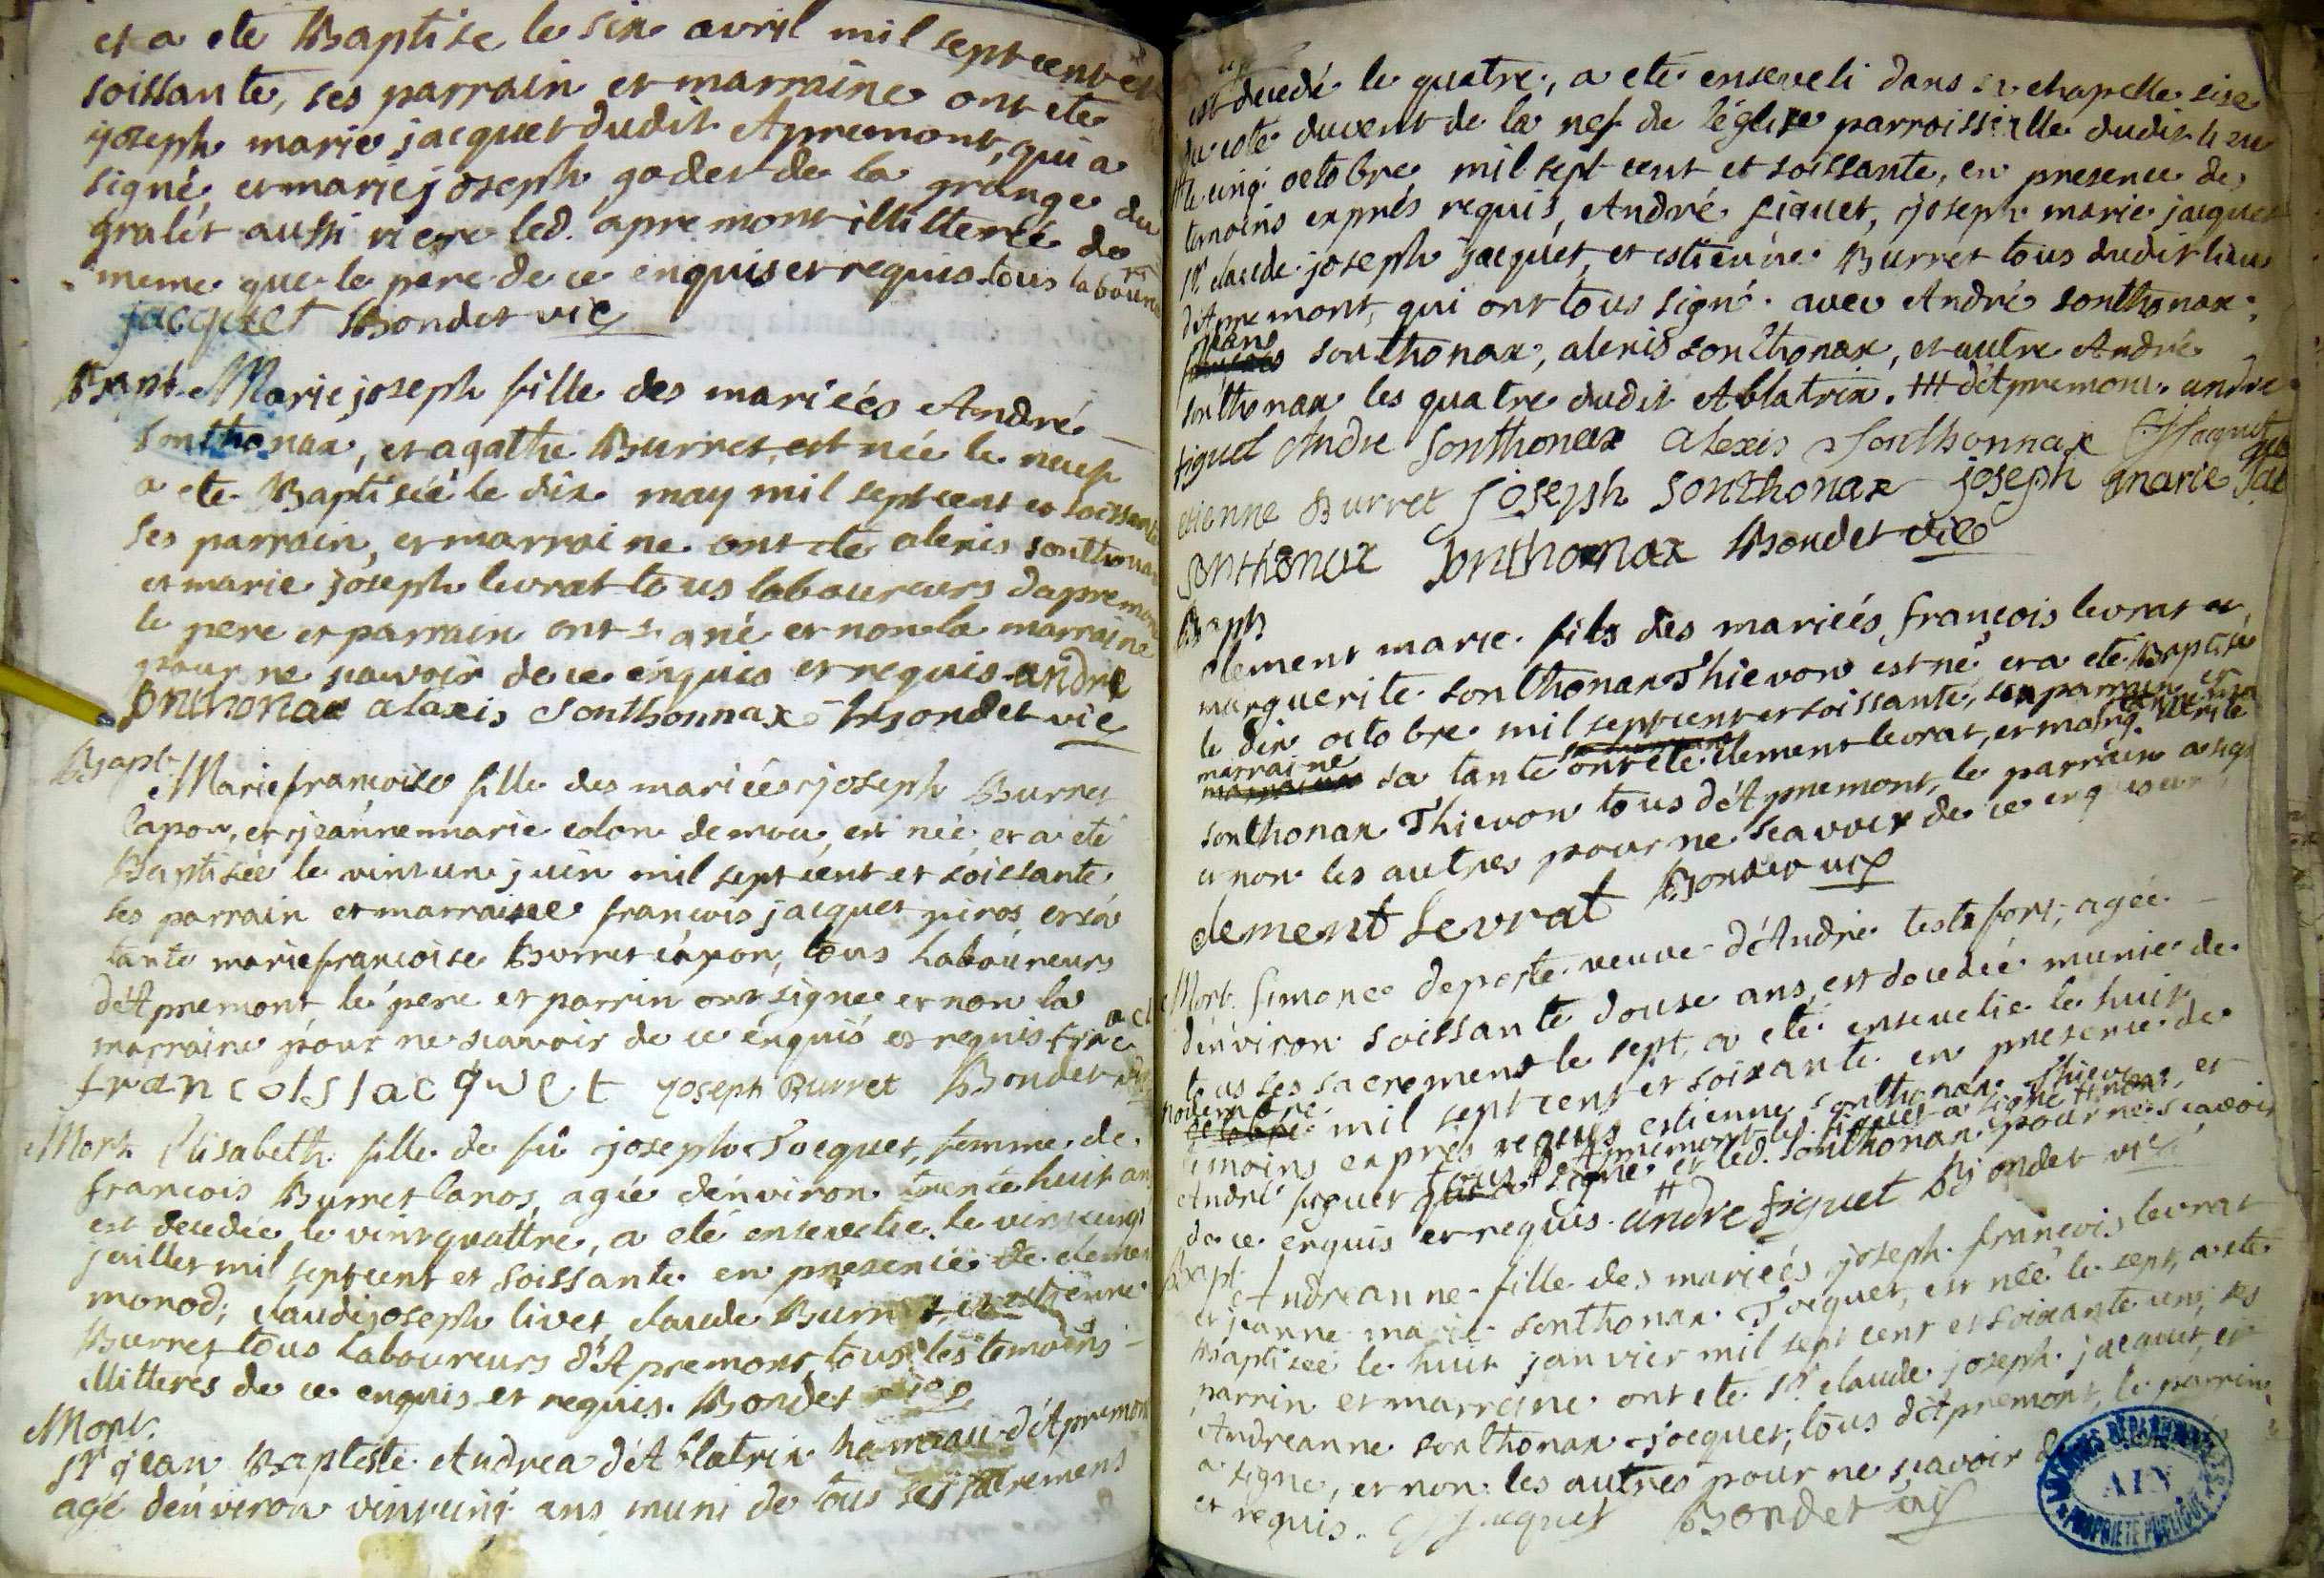 et a ete Baptise le six avril mil sept cent et
soissante, ses parrain et marraine ont ete
joseph marie jacquet dudit Apremont, qui a
signé, et marie joseph godet de la grange du
gralet aussi riere led. apremont illitterée de
meme que le pere de ce enquis et requis tous laboureurs
jacquet Bondet vic
Bapt. Marie joseph fille des mariées André
Sonthonax, et agathe Burret, est née le neuf
a ete Baptisée le dix may mil sept cent et soissante
ses parrain, et marraine ont ete alexis sonthonax
et marie joseph levrat tous laboureurs dapremont
le pere et parrain ont signé et non la marraine
pour ne scavoir de ce enquis et requis andre
sonthonax alaxis Sonthonnax Bondet vic
Bapt. Marie francoise fille des mariées joseph Burret
capon, et jeanne marie colon demou, est née, et a eté
Baptisée le vint un juin mil sept cent et soissante
ses parrain et marraine francois jacquet piros, et sa
tante marie francoise Burret capon, tous laboureurs
d'Apremont, le pere et parrin ont signee et non la
marraine pour ne scavoir de ce enquis et requis
francois jacquet joseph Burret Bondet vic
Mort. Elisabeth fille de fû joseph Tocquet, femme de
francois Burret lanos, agée d'environ trente huit ans
est decedée le vint quattre, a eté ensevelie le vint cinq
juillet mil sept cent et soissante en presence de clement
monod, claude joseph livet claude Burret, et estienne
Burret tous laboureurs d'Apremont, tous les temoins
illitterés de ce enquis et requis. Bondet vic
Mort.
Sr jean Baptiste Andrea d'Ablatrix hameau d'Apremont
agé d'environ vint cinq ans muni de tous ses sacremens
est decedé le quatre, a eté enseveli dans sa chapelle sise
du coté du vent de la nef de l'église parroissialle dudit lieu
le cinq octobre mil sept cent et soissante, en presence des
temoins exprés requis, André figuet, joseph marie jacquet
Sr claude joseph jacquet, et estienne Burret tous dudit lieu
d'Apremont, qui ont tous signé avec André sonthonax,
jean
sonthonax, alexis sonthonax, et autre André
sonthonax les quatre dudit Ablatrix. ttt d'Apremont. andre
figuet Andre Sonthonax alexis Sonthonnax CJJacquet
etienne Burret joseph sonthonax joseph marie jac
quet
sonthonax sonthonax Bondet vic
Bapt
Clement marie fils des mariées françois levrat et
marguerite sonthonax Thievon est né, et a eté Baptisé
le dix octobre mil sept cent et soissante, son parrain et
marraine sa tante ont ete clement levrat, et marguerite
sonthonax Thievon tous d'Apremont, le parrain a signé
et non les autres pour ne scavoir de ce enquis et
clement Levrat Bondet vic
Mort. Simonee deporte veuve d'André teste fort, agée
d'environ soissante douse ans, est decedée munie de
tous ses sacrement le sept, a eté ensevelie le huit
novembre mil sept cent et soixante en presence de
temoins exprés requis estienne sonthonax Thievon, et
André figuet tous d'Apremont led. figuet a signé et non
led. sonthonax pour ne scavoir
de ce enquis et requis. andre figuet Bondet vic
Bapt.
Andreanne fille des mariées joseph francois levrat
et jeanne marie sonthonax Tocquet, est née le sept, a eté
Baptisée le huit janvier mil sept cent et soixante un, ses
parrin et marraine ont eté Sr claude joseph jacquet, et
Andreanne sonthonax jocquet, tous d'Apremont, le parrin
a signe, et non les autres pour ne scavoir de
et requis. CJJacquet Bondet vic
ARCHIVES DEPARTEMENTALES
AIN
PROPRIETE PUBLIQUE